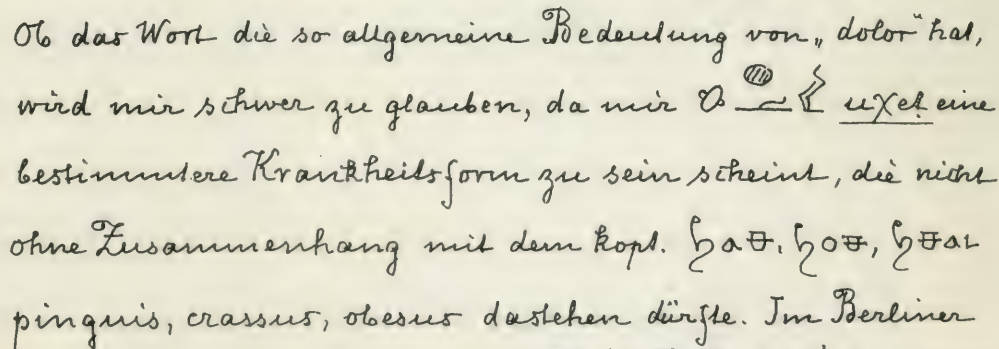 Ob das Wort die so allgemeine Bedeutung von „dolor“ hat,
wird mir schwer zu glauben, da mir uχeṭ eine
bestimmtere Krankheitsform zu sein scheint, die nicht
ohne Zusammenhang mit dem kopt.
pinguis, crassus, obesus dastehen dürfte. Im Berliner